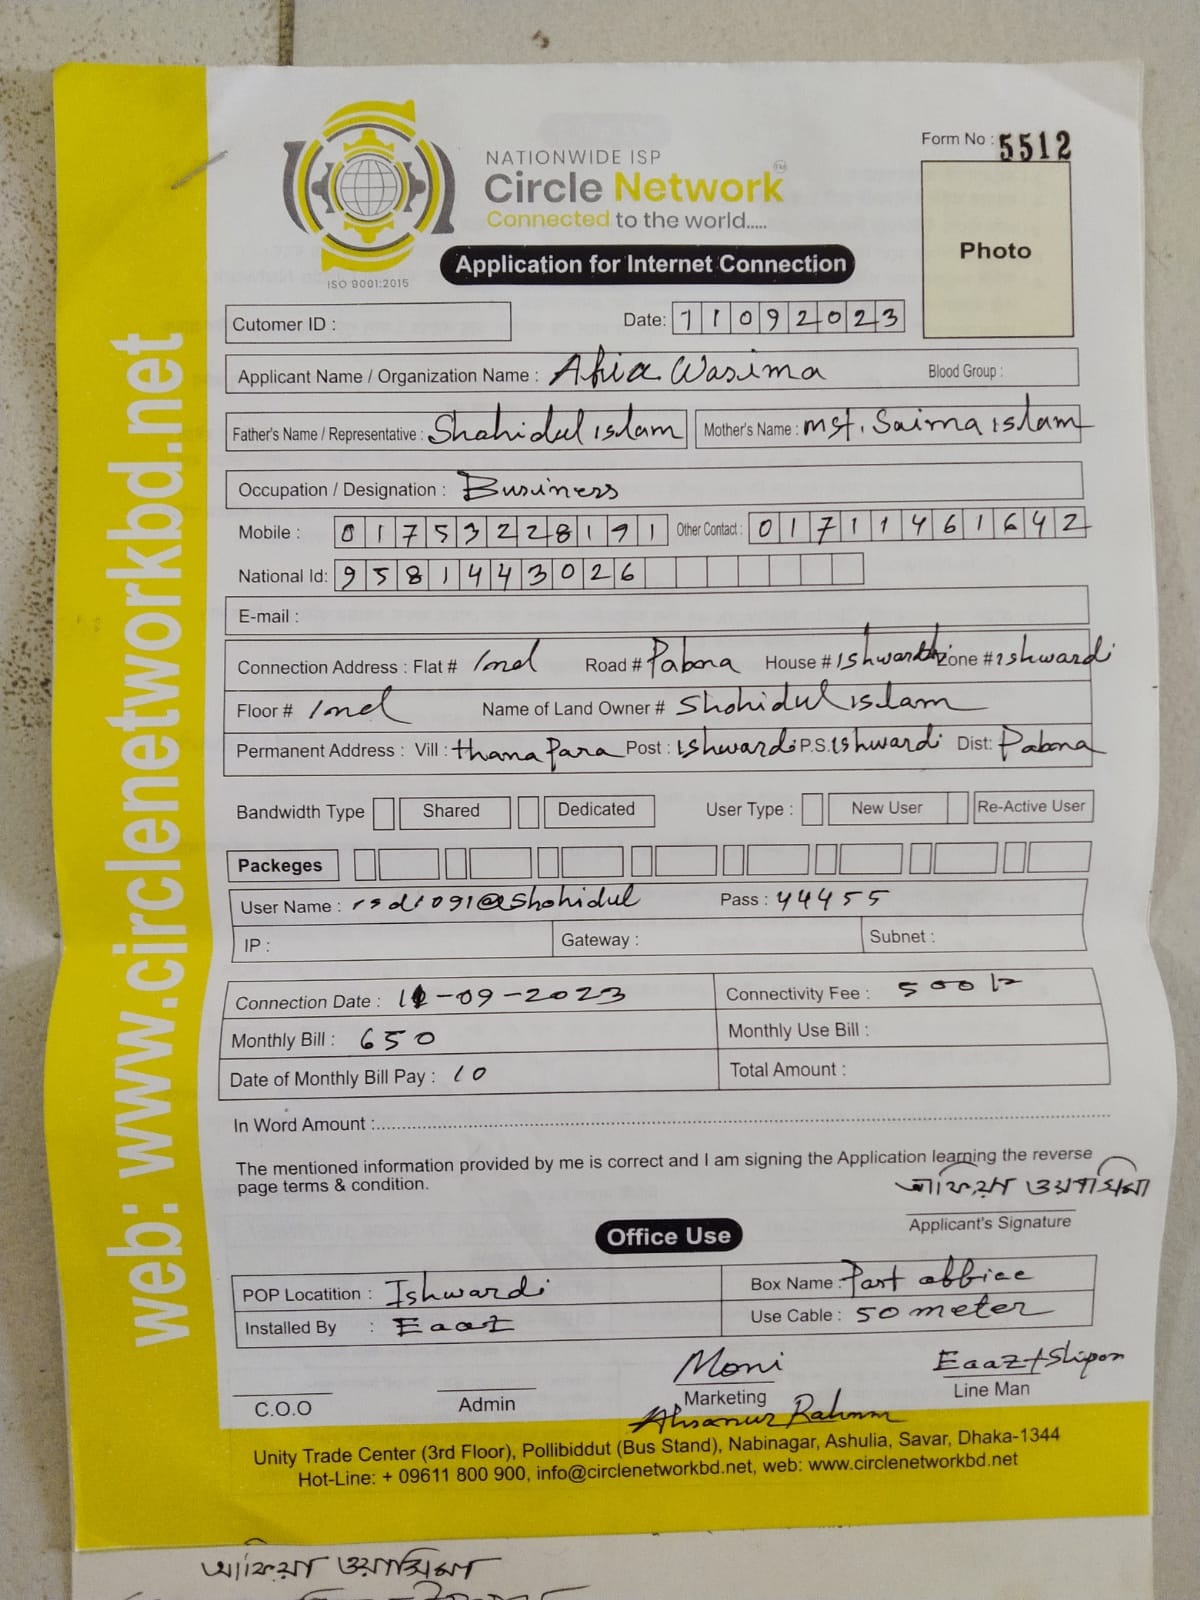 web: www.circlenetworkbd.net
NATIONWIDE ISP
Circle Network TM
Connected to the world.....
ISO 9001:2015
Form No : 5512
Photo
Application for Internet Connection
Cutomer ID : Date: 11092023
Applicant Name / Organization Name : Afia Wasima Blood Group :
Father's Name / Representative : Shohidul islam Mother's Name : mst. Saima islam
Occupation / Designation : Business
Mobile : 01753228191 Other Contact : 01711461642
National Id: 9581443026
E-mail :
Connection Address : Flat # Road # Pabna House # Ishwardi Zone # ishwardi
Floor # Name of Land Owner # Shohidul islam
Permanent Address : Vill : thana Para Post : Ishwardi P.S. ishwardi Dist: Pabna
Bandwidth Type Shared Dedicated User Type : New User Re-Active User
Packeges
User Name : rsd1091@shohidul Pass : 44455
IP : Gateway : Subnet :
Connection Date : 11-09-2023 Connectivity Fee : 500
Monthly Bill : 650 Monthly Use Bill :
Date of Monthly Bill Pay : 10 Total Amount :
In Word Amount :
The mentioned information provided by me is correct and I am signing the Application learning the reverse
page terms & condition.
আফিয়া ওয়াসিমা
Applicant's Signature
Office Use
POP Locatition : Ishwardi Box Name : Part office
Installed By : Eaaz Use Cable : 50 meter
Moni Eaaz+Shipon
C.O.O Admin Marketing Line Man
Ahsanur Rahman
Unity Trade Center (3rd Floor), Pollibiddut (Bus Stand), Nabinagar, Ashulia, Savar, Dhaka-1344
Hot-Line: + 09611 800 900, info@circlenetworkbd.net, web: www.circlenetworkbd.net
আফিয়া ওয়াসিমা